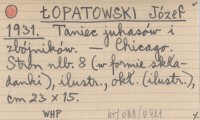 ŁOPATOWSKI Józef
1931. Taniec juhasów i
zbójników. — Chicago.
Stron nlb. 8 (w formie skła-
danki), ilustr., okł. (ilustr.),
cm 23 × 15.
WHP